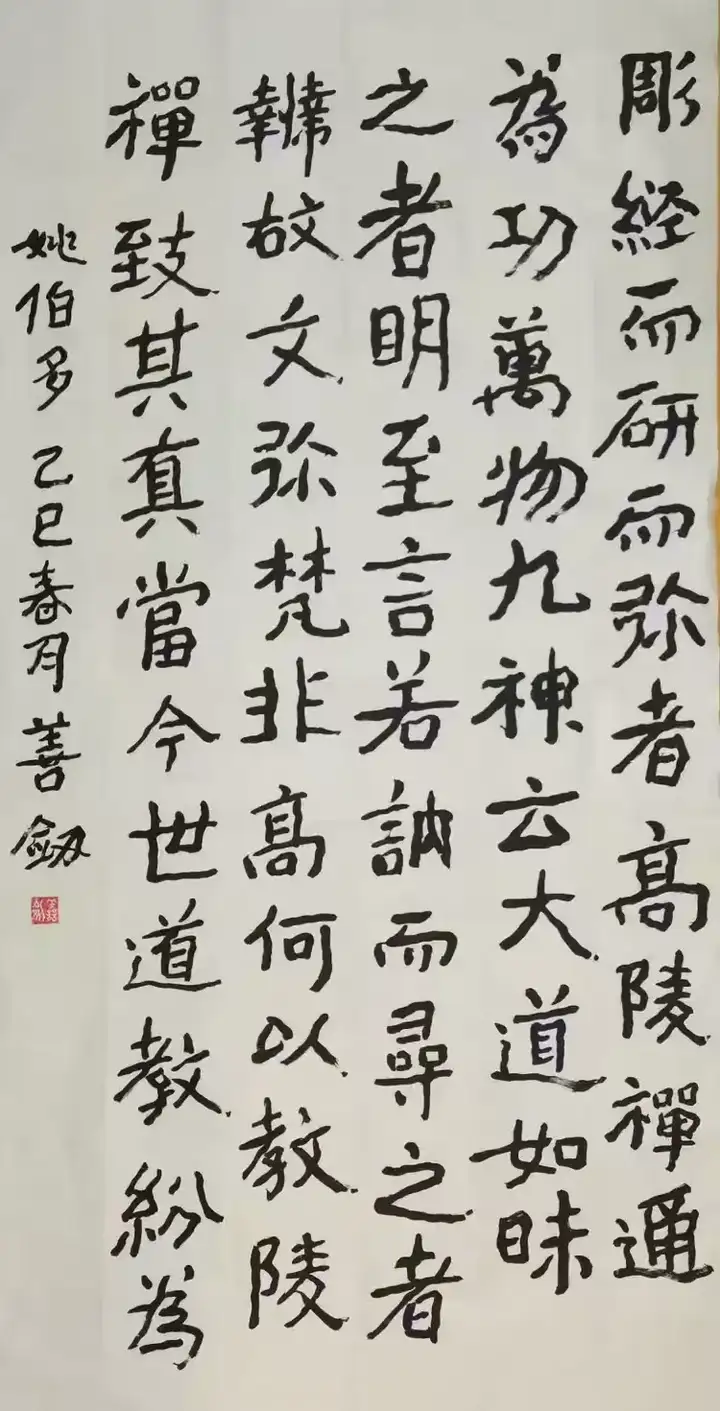 彫經而研而弥者高陵禪通
為功萬物九神云大道如昧
之者明至言若訥而尋之者
韡故文弥梵非高何以教陵
禪致其真當今世道教紛為
姚伯多 乙巳春月 善劔